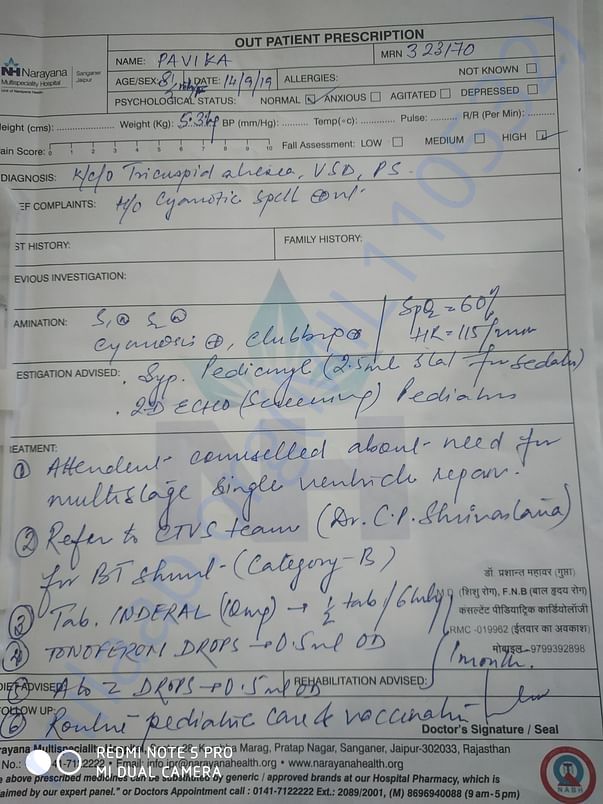 OUT PATIENT PRESCRIPTION
NH Narayana
Multispeciality Hospital
Unit of Narayana Health
Sanganer
Jaipur
NAME: PAVIKA
MRN 323170
AGE/SEX: 8 DATE: 14/9/19 ALLERGIES: NOT KNOWN
PSYCHOLOGICAL STATUS: NORMAL ANXIOUS AGITATED DEPRESSED
eight (cms): Weight (Kg): 5.3kg BP (mm/Hg): Temp(°c): Pulse: R/R (Per Min):
ain Score: 0 1 2 3 4 5 6 7 8 9 10 Fall Assessment: LOW MEDIUM HIGH
DIAGNOSIS: K/c/o Tricuspid atresia, VSD, PS.
EF COMPLAINTS: H/o Cyanotic Spell
ST HISTORY: FAMILY HISTORY:
EVIOUS INVESTIGATION:
AMINATION: S1 S2 SpO2 = 60%
Cyanosis ⊕, Clubbing ⊕ HR = 115/min
ESTIGATION ADVISED: Syp. Pedicloryl (2.5ml Stat for sedation)
2-D ECHO (Screening) Pediatric
EATMENT:
① Attendent counselled about need for
multistage single ventricle repair.
② Refer to CTVS team (Dr. C.P. Shrivastava)
for BT Shunt (Category-B)
③ Tab. INDERAL (10mg) → 1/2 tab / 6 hrly
④ TONOFERON DROPS → 0.5ml OD
1 month.
डॉ प्रशान्त महावर (गुप्ता)
(शिशु रोग), F.N.B (बाल हृदय रोग)
कंसल्टेंट पीडियाट्रिक कार्डियोलॉजी
RMC -019962 (ईतवार का अवकाश)
मोबाइल -9799392898
DIET ADVISED: REHABILITATION ADVISED:
⑤ A to Z DROPS → 0.5ml OD
OLLOW UP:
⑥ Routine pediatric care & vaccination
Doctor's Signature / Seal
rayana Multispeciality Marag, Pratap Nagar, Sanganer, Jaipur-302033, Rajasthan
No.: 1-7122222 • Email: info.jpr@narayanahealth.org • www.narayanahealth.org
e above prescribed medicines can be substituted by generic / approved brands at our Hospital Pharmacy, which is
aimed by our expert panel." or Doctors Appointment call : 0141-7122222 Ext.: 2089/2001, (M) 8696940088 (9 am - 5 pm)
NABH
REDMI NOTE 5 PRO
MI DUAL CAMERA